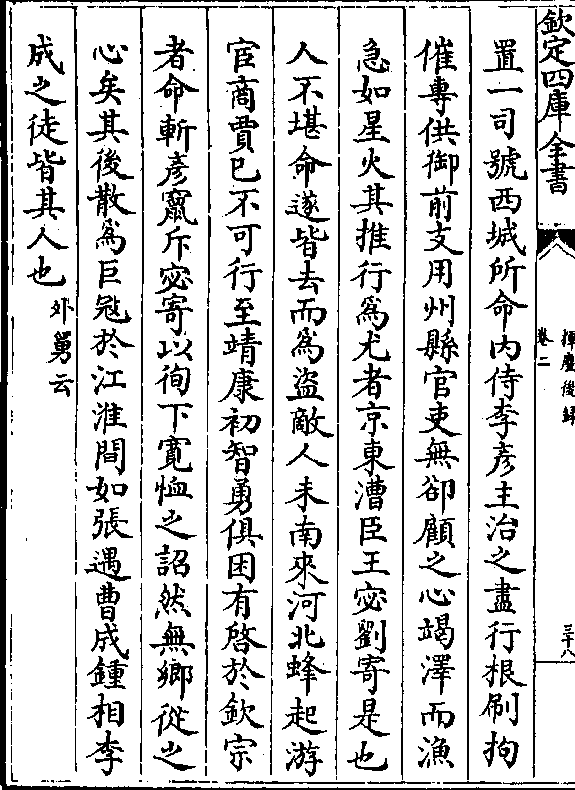 欽定四庫全書
揮麈後録
卷二
三十八
置一司號西城所命内侍李彦主治之盡行根刷拘
催專供御前支用州縣官吏無卻顧之心竭澤而漁
急如星火其推行為尤者京東漕臣王宓劉寄是也
人不堪命遂皆去而為盜敵人未南來河北蜂起游
宦商賈已不可行至靖康初智勇俱困有啓於欽宗
者命斬彦竄斥宓寄以徇下寛恤之詔然無鄉從之
心矣其後散為巨冦於江淮間如張遇曹成鍾相李
成之徒皆其人也
外舅云